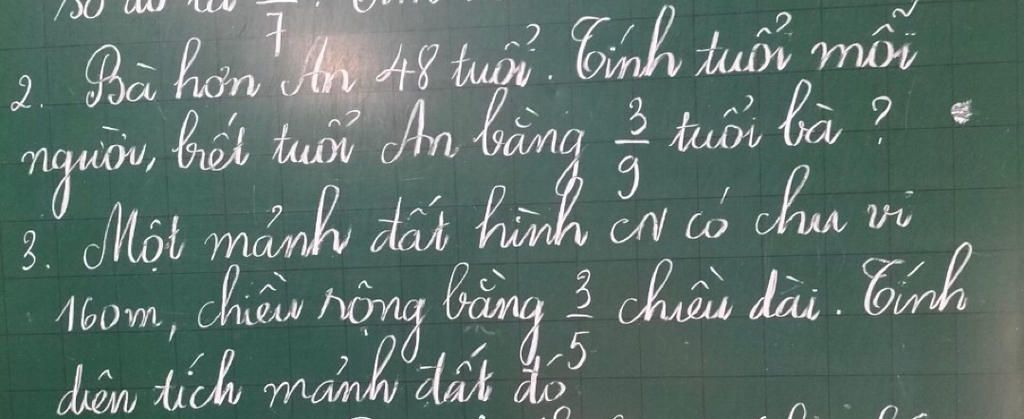 7
2. Bà hơn An 48 tuổi. Tính tuổi mỗi
người, biết tuổi An bằng 3/9 tuổi bà ?
3. Một mảnh đất hình CN có chu vi
160m, chiều rộng bằng 3/5 chiều dài. Tính
diện tích mảnh đất đó